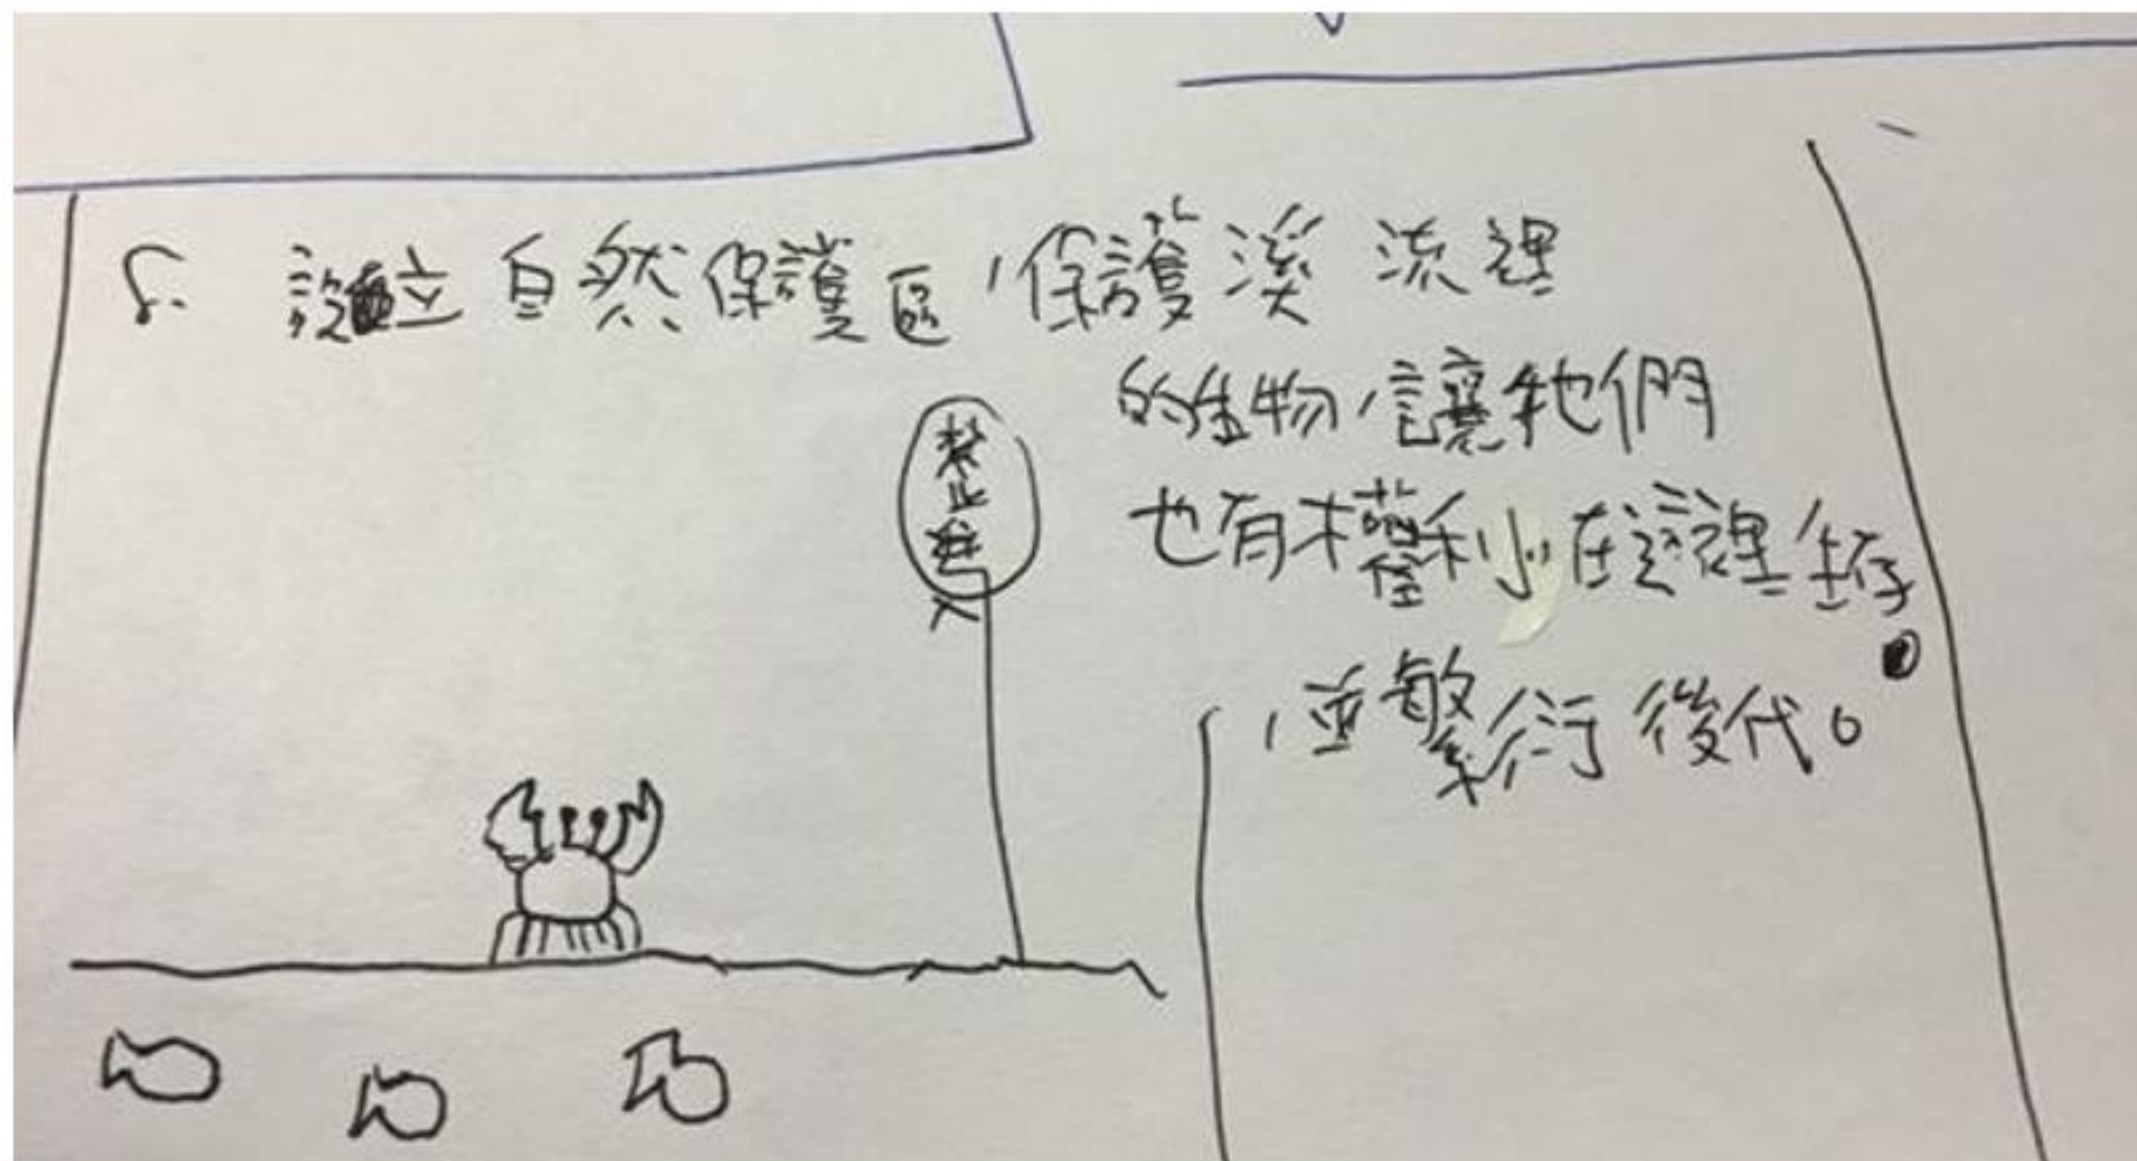 8. 設立自然保護區，保護溪流裡
的生物，讓牠們
也有權利在這裡生存
，並繁衍後代。
禁止進入